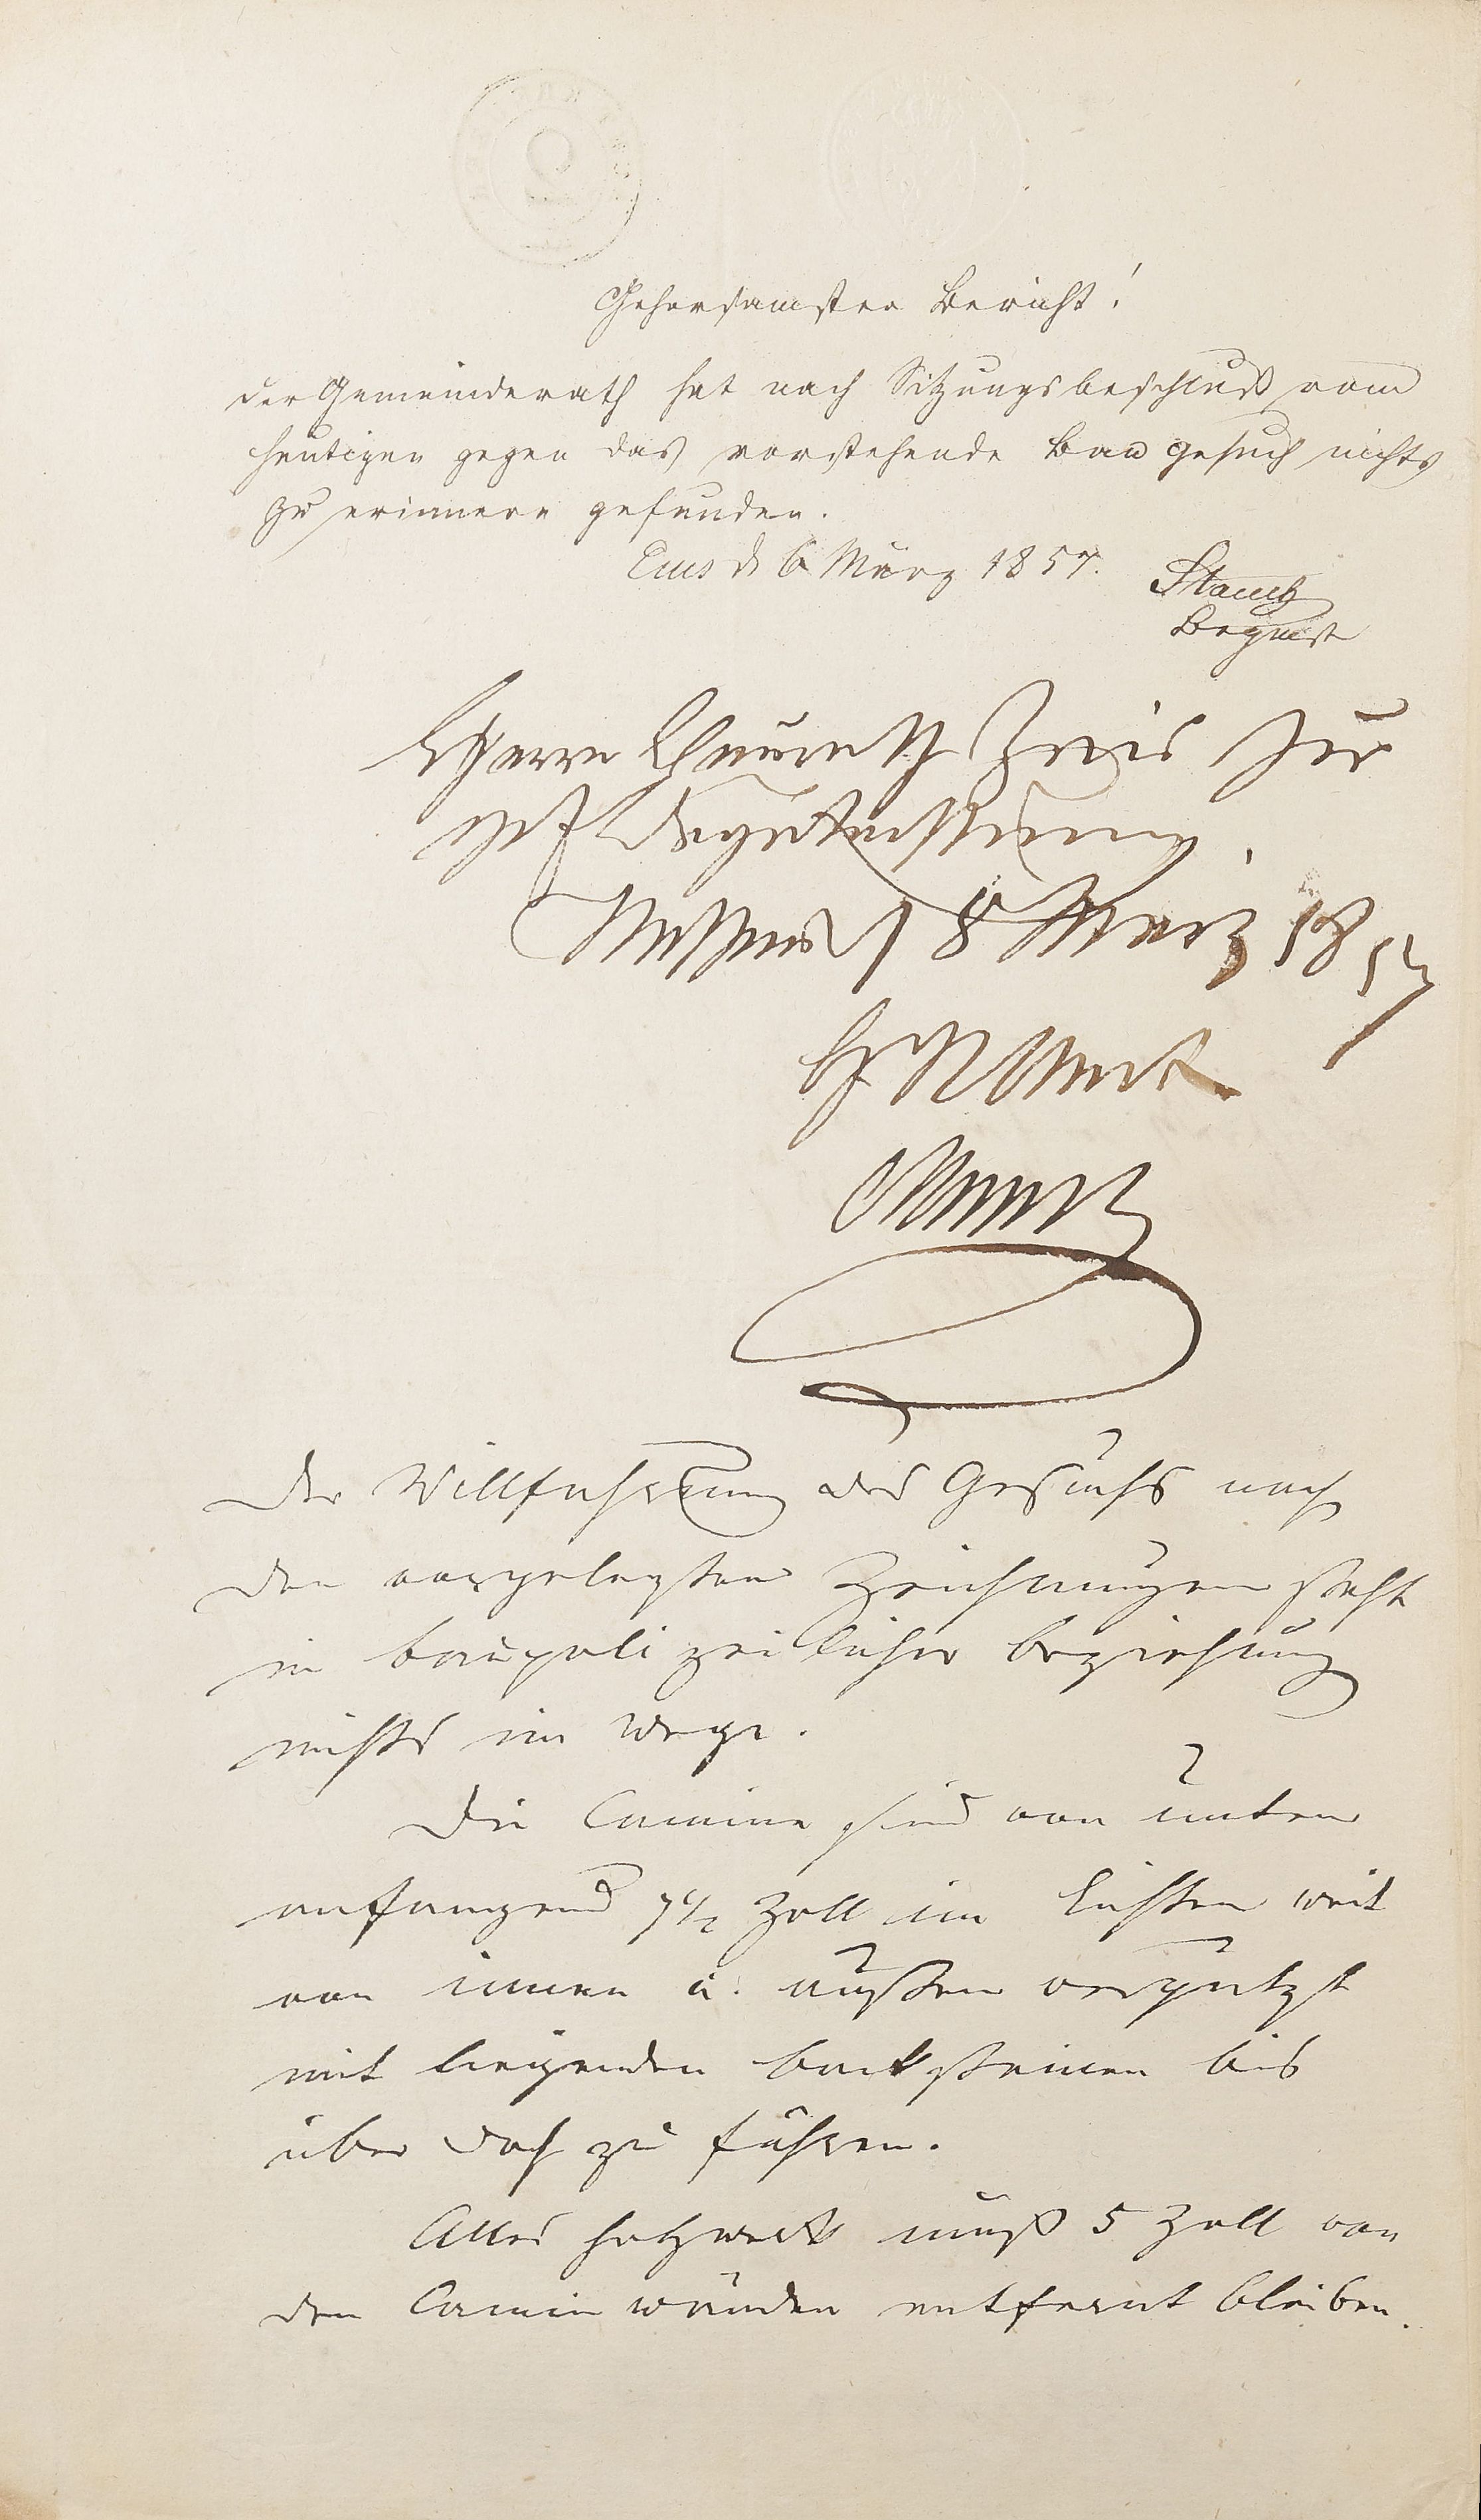 Gehorsamster Bericht!
Der Gemeinderath hat nach Sitzungsbeschluß vom
heutigen gegen das vorstehende Baugesuch nichts
zu erinnern gefunden.
Ems d 6 März 1857.
Herrn Baurath Zais zur
gef Begutachtung.
Nassau 8 März 1857
Der Willfahrung des Gesuchs nach
den vorgelegten Zeichnungen steht
in baupolizeilicher Beziehung
nichts im Wege.
Die Camine sind von unten
anfangend 7 1/2 Zoll im Lichten weit
von innen u. außen verputzt
mit liegenden Backsteinen bis
über Dach zu führen.
Alles Holzwerk muß 5 Zoll von
den Caminwänden entfernt bleiben.